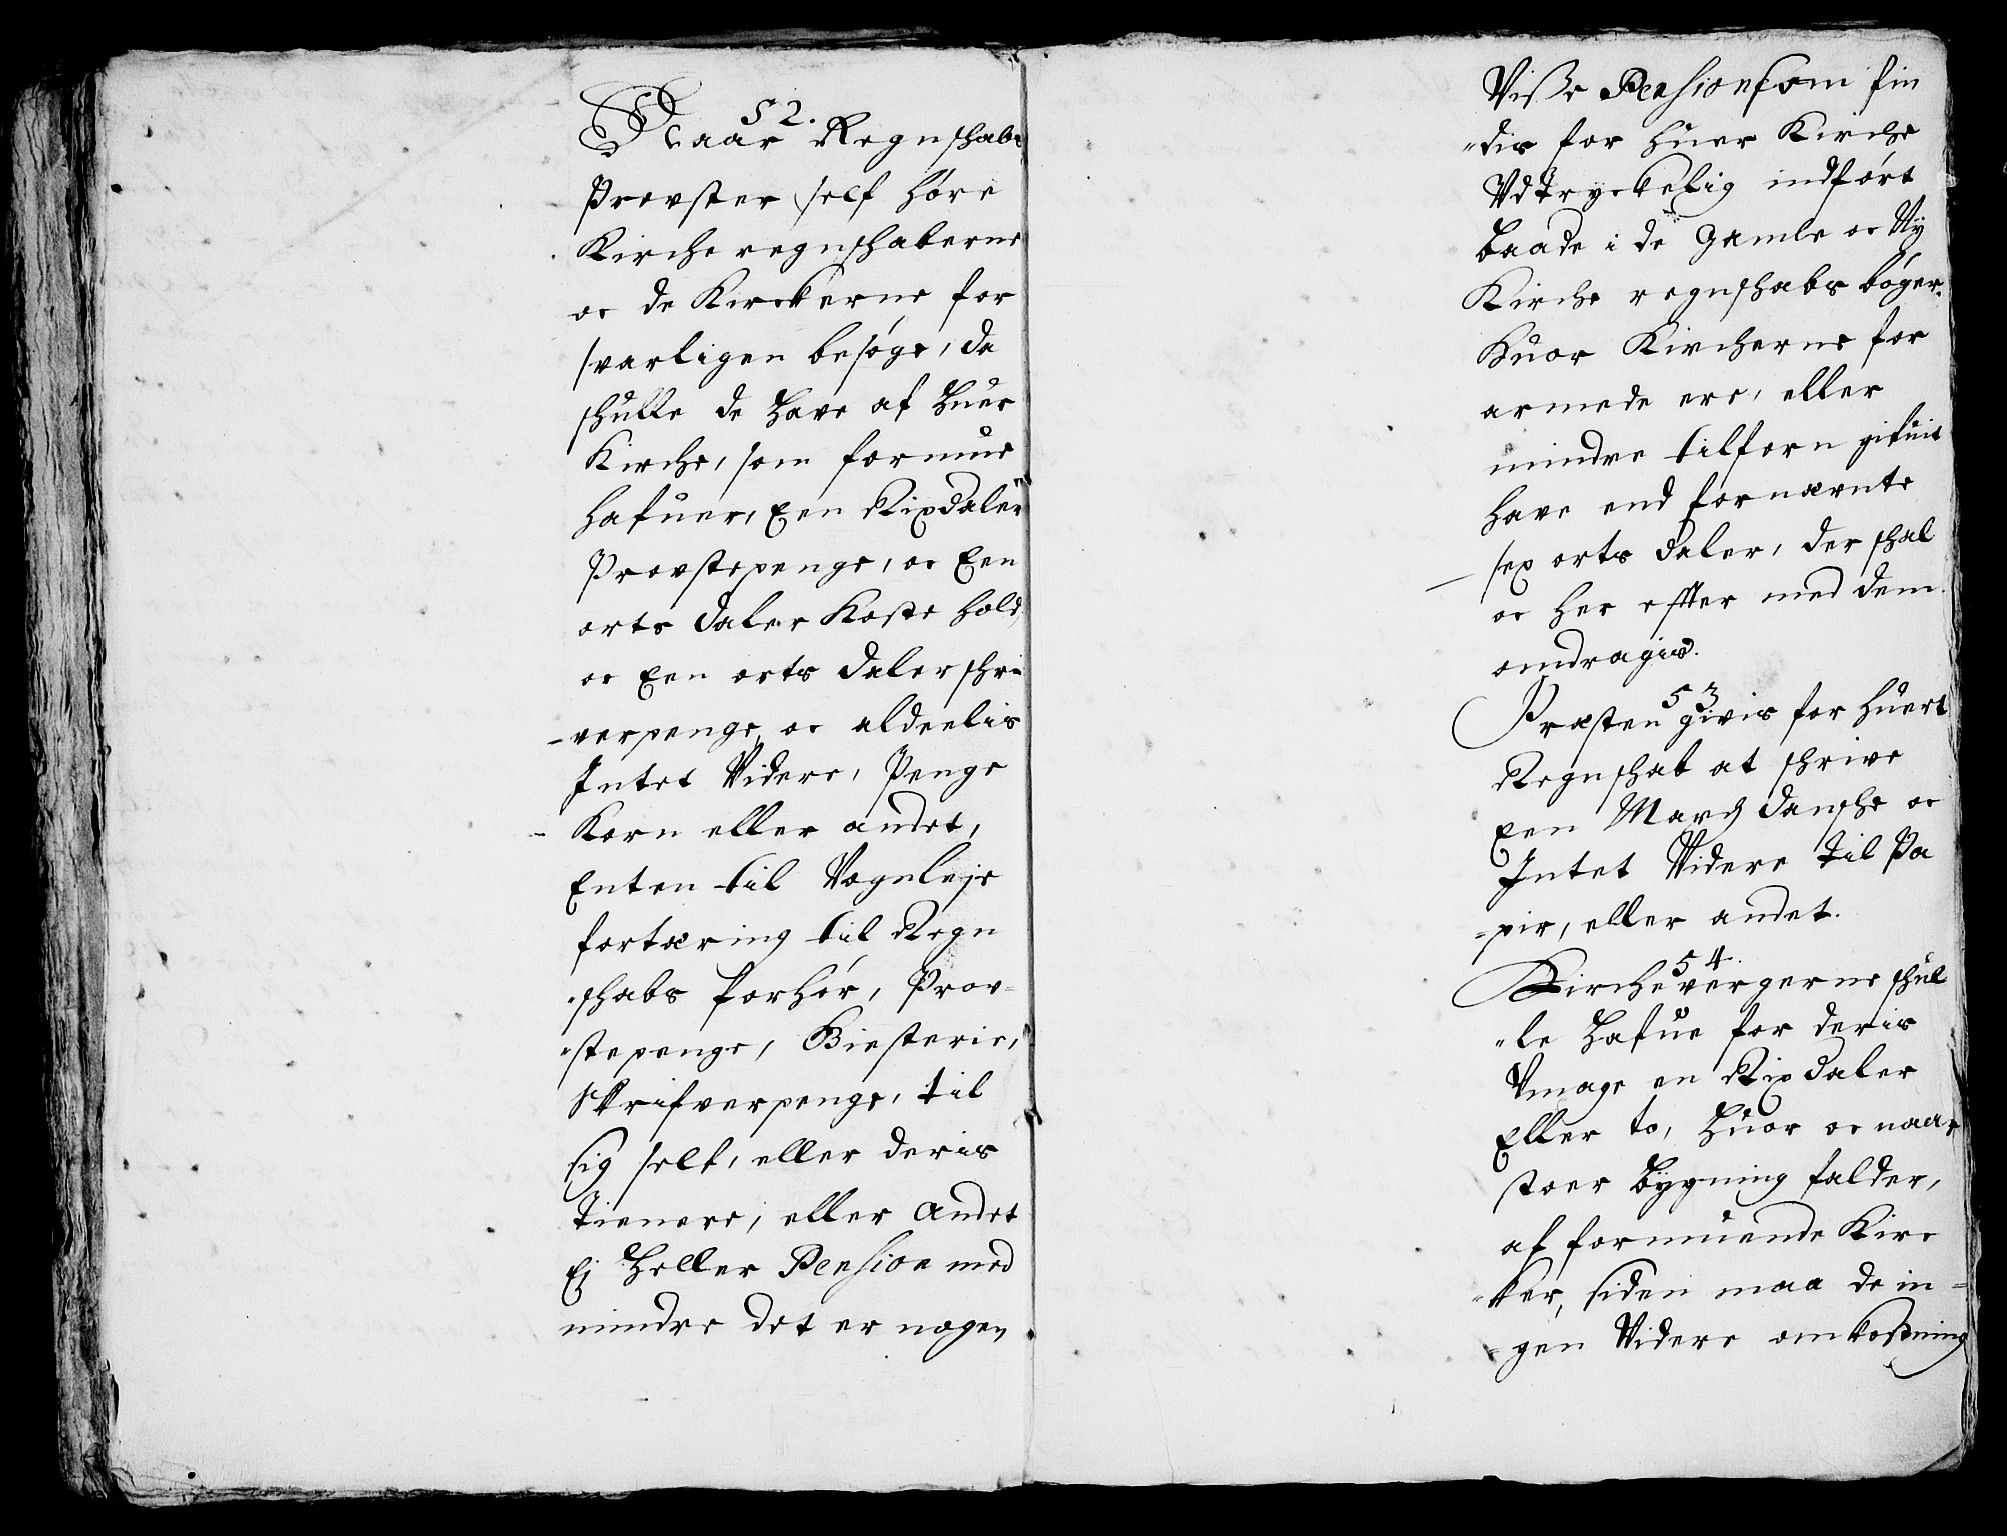 52.
Naar Regnskabs
Provster self høre
Kirche regnskaberne
oc de Kirckerne for
svarligen besøge, da
skulle de have af huer
Kirche, som formue
hafuer, Een Rixdaler
Provstepenge, oc Een
orts daler Kostehold,
oc Een orts daler skri
-verpenge, oc aldeelis
Intet Videre, Penge
Korn eller andet,
Enten til Vognleje
fortæring til Regn
=skabs forhør, Prov=
=stepenge, Biesterie,
Skrifverpenge, til
sig self, eller deris
Tienere, eller andet
Ej heller Pension med
mindre det er nogen
Visse Pension som fin
=dis for huer Kirche
Vdtryckelig indført
baade i de Gamle oc Ny
Kirche regnskabs bøger.
Huor Kircherne for
armede ere, eller
mindre tilforn gifuit
have end fornævnte
sex orts daler, der skal
oc her effter med dem
omdragis.
53
Præsten givis for huert
Regnskab at skrive
Een Marck danske oc
Intet Videre til Pa
=pir, eller andet.
54.
Kirchevergerne skul
=le hafue for deris
Vmage en Rixdaler
Eller to, huor oc naar
stoer bygning falder,
af formuende Kirc
=ker, siden maa de in=
=gen Videre omkostning